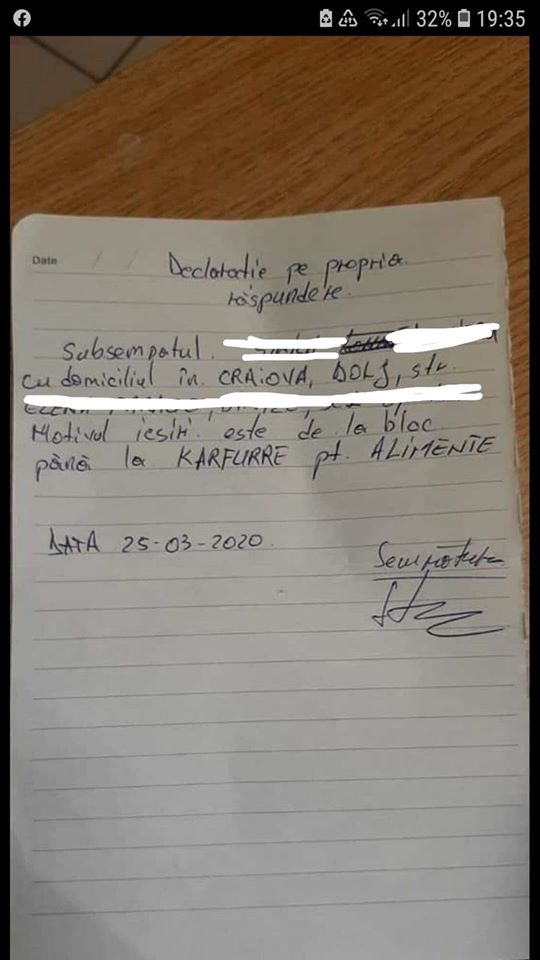 32% 19:35
Date / /
Declaratie pe propria
răspundere.
Subsempatul.
cu domiciliul în CRAiOVA, DOLJ, str.
Motivul iesiri este de la bloc
până la KARFURRE pt. ALIMENTE
DATA 25-03-2020.